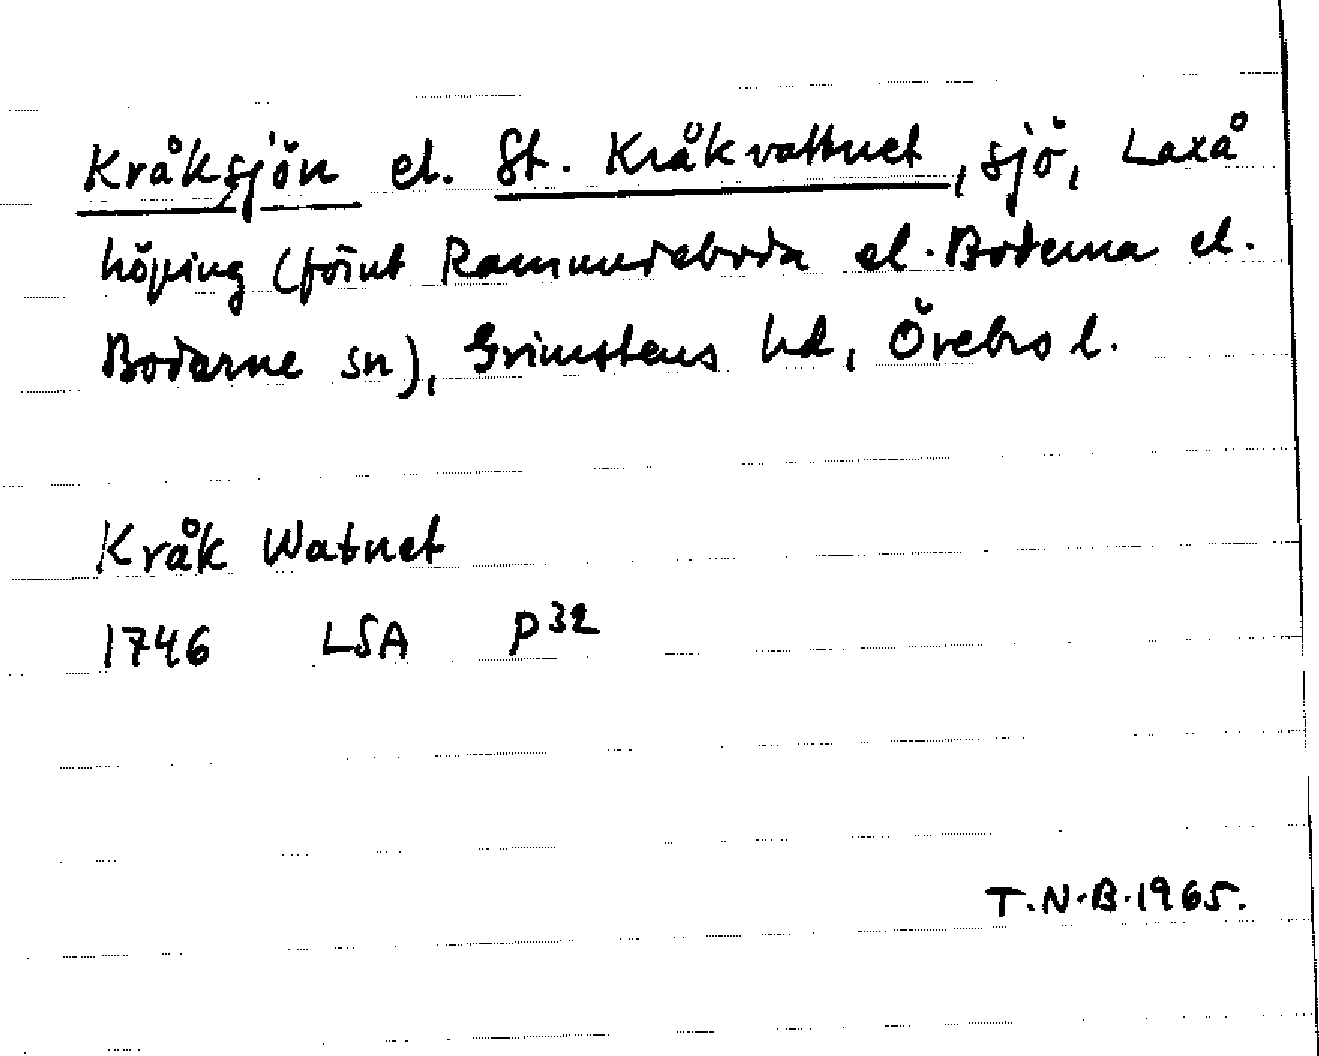 Kråksjön el. St. Kråkvattnet, sjö, Laxå
köping (förut Ramundeboda el. Boderna el.
Bodarne sn), Grimstens hd, Örebro l.
Kråk Watnet
1746 LSA P32
T.N.B. 1965.